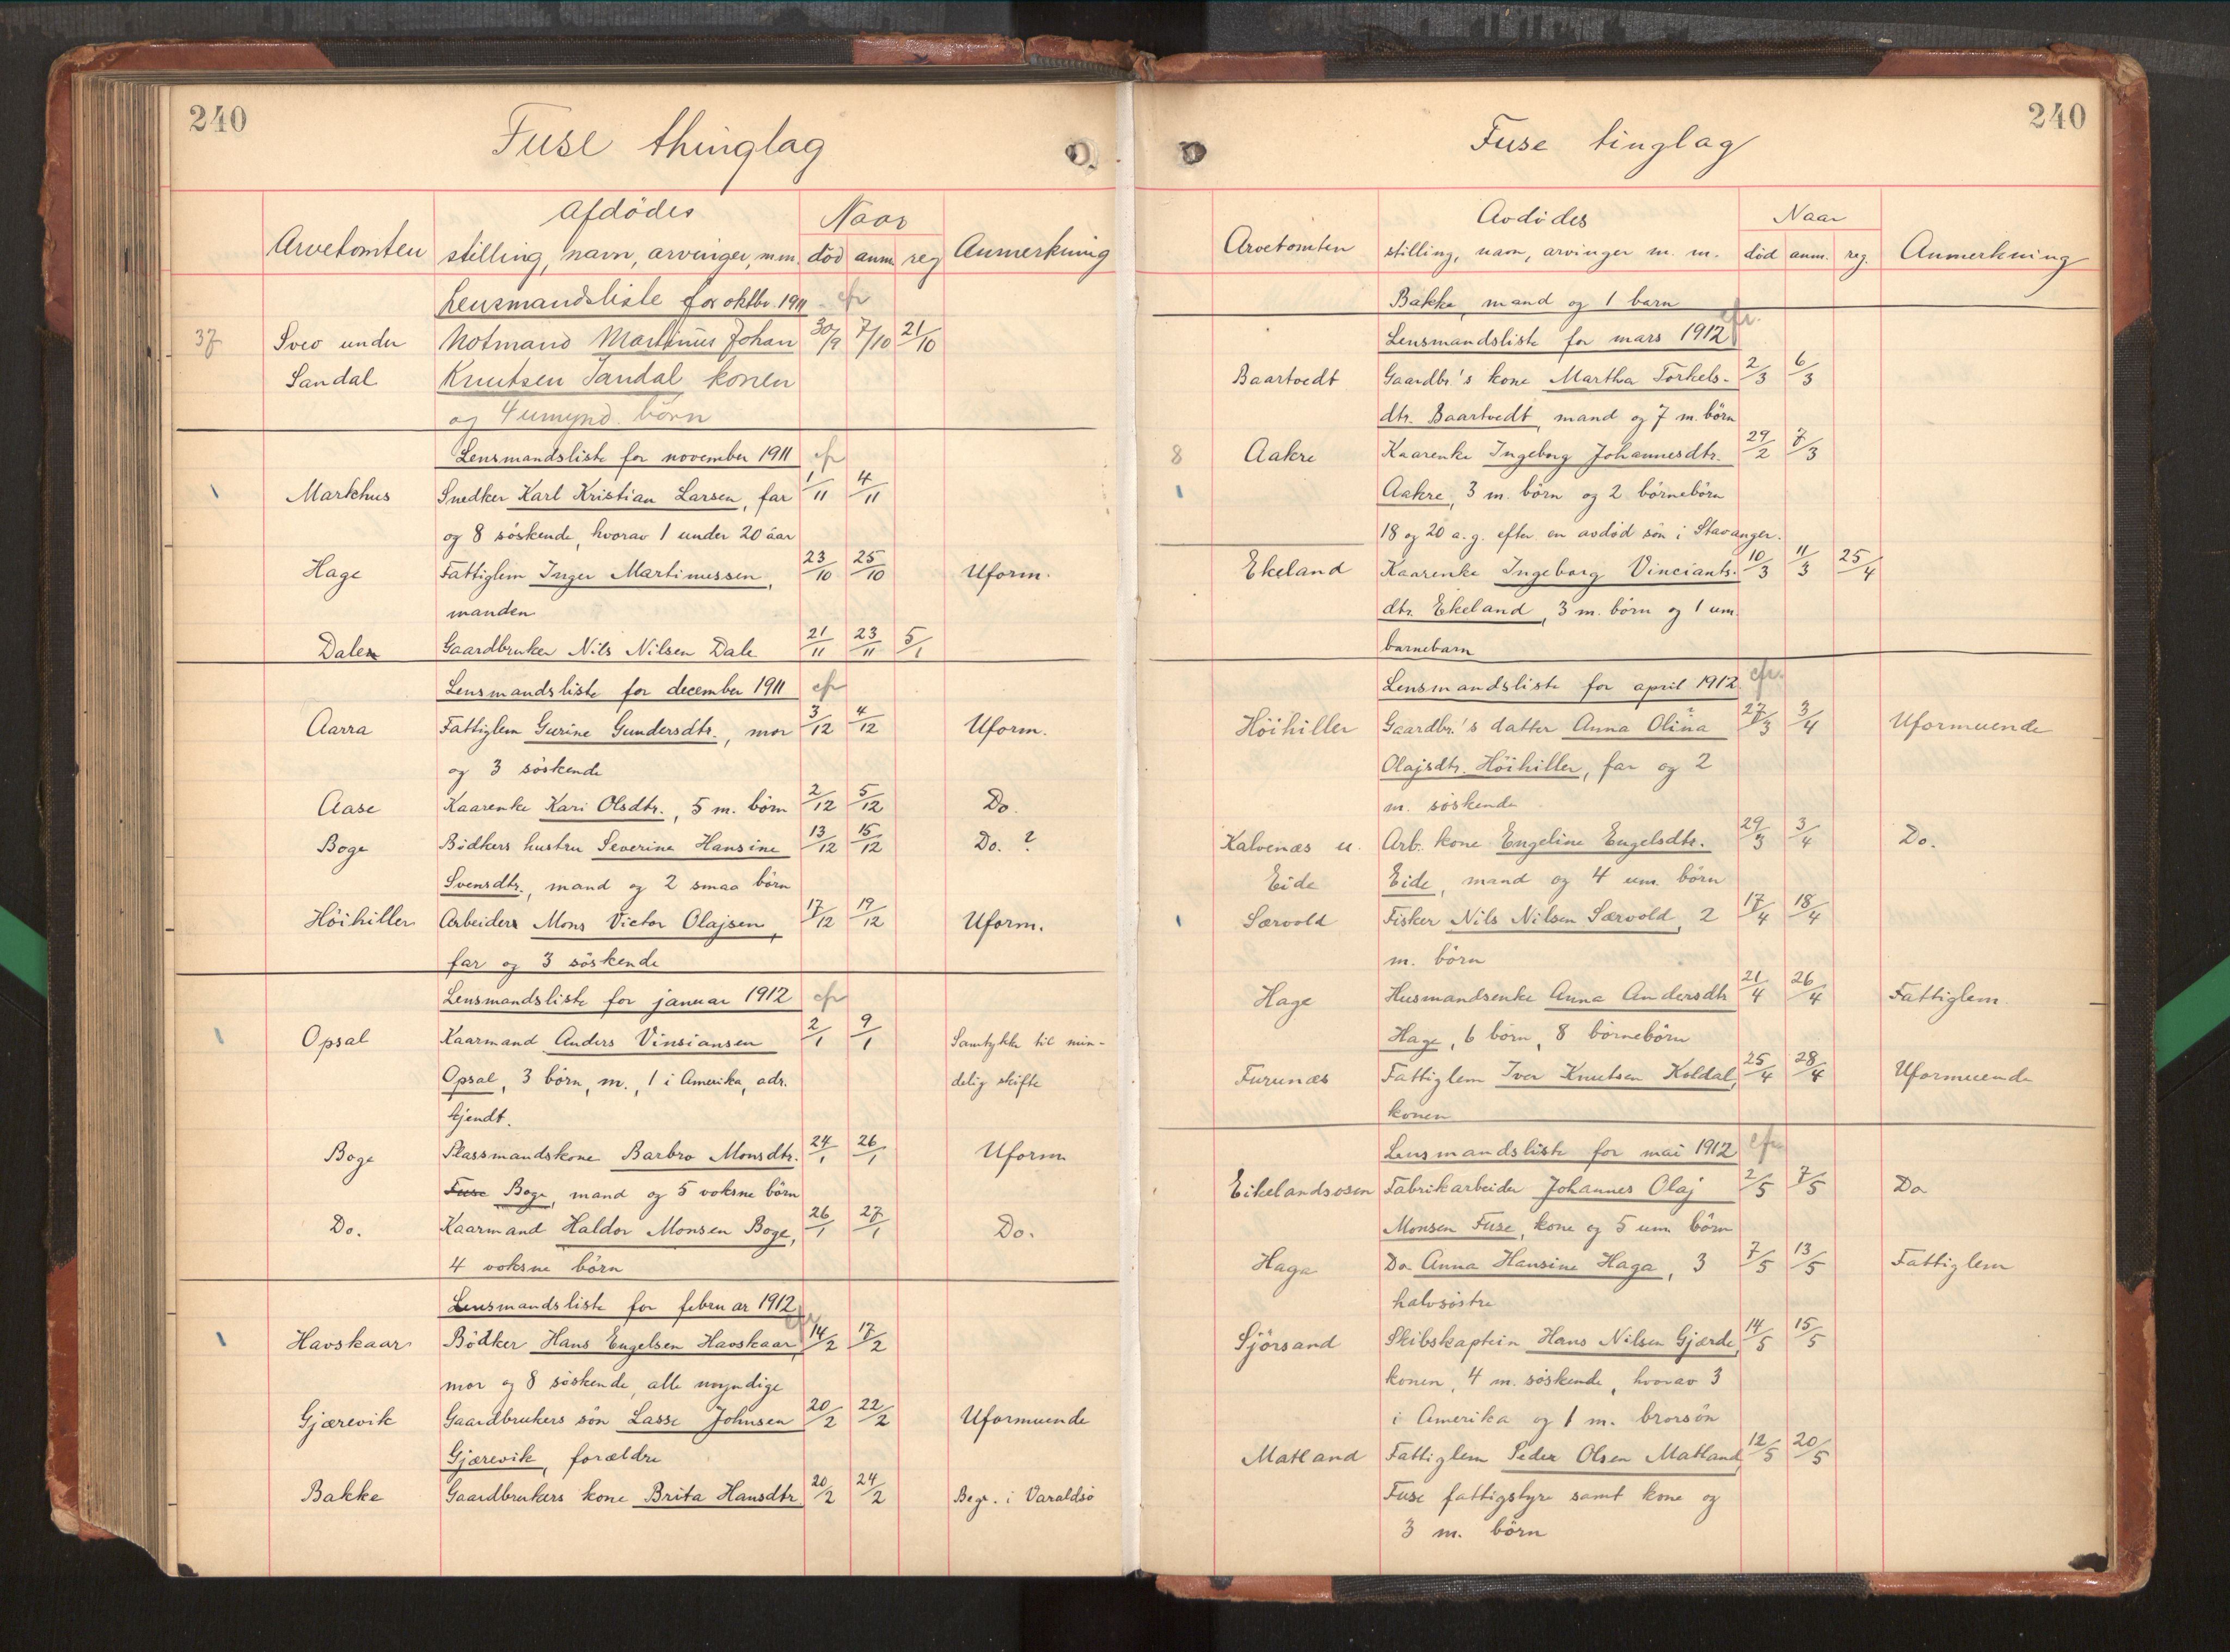 240
Fuse thinglag
Arvetomten
Afdödes stilling, navn, arvinger, m.m.
Naar
död anm. reg
Anmerkning
Lensmandsliste for oktbr. 1911 cfr
37 Sveo under Notmand Martinus Johan 30/9 7/10 21/10
Sandal Knutsen Sandal konen
og 4 umynd. börn
Lensmandsliste for november 1911 cfr
Markhus Snedker Karl Kristian Larsen, far 1/11 4/11
og 8 söskende, hvorav 1 under 20 aar
Hage Fattiglem Inger Martinussen, 23/10 25/10 Uform.
manden
Dale Gaardbruker Nils Nilsen Dale 21/11 23/11 5/1
Lensmandsliste for december 1911 cfr
Aarra Fattiglem Gurine Gundersdtr., mor 3/12 4/12 Uform.
og 3 söskende
Aase Kaarenke Kari Olsdtr., 5 m. börn 2/12 5/12 Do.
Boge Bödkers hustru Severine Hansine 13/12 15/12 Do. ?
Svensdtr., mand og 2 smaa börn
Höihiller Arbeider Mons Victor Olajsen, 17/12 19/12 Uform.
far og 3 söskende
Lensmandsliste for januar 1912 cfr
Opsal Kaarmand Anders Vinsiansen 2/1 9/1 Samtykke til min-
Opsal, 3 börn, m., 1 i Amerika, adr. delig skifte
kjendt.
Boge Plassmandskone Barbro Monsdtr. 24/1 26/1 Uform
Fuse Boge, mand og 5 voksne börn
Do. Kaarmand Haldor Monsen Boge, 26/1 27/1 Do.
4 voksne börn
Lensmandsliste for februar 1912 cfr
Havskaar Bödker Hans Engelsen Havskaar, 14/2 17/2
mor og 8 söskende, alle myndige
Gjærevik Gaardbrukers sön Lasse Johnsen 20/2 22/2 Uformuende
Gjærevik, forældre
Bakke Gaardbrukers kone Brita Hansdtr 20/2 24/2 Begr. i Varaldsö
240
Fuse tinglag
Arvetomten
Avdödes stilling, navn, arvinger m. m.
Naar
död anm. reg.
Anmerkning
Bakke, mand og 1 barn
Lensmandsliste for mars 1912 cfr.
Baartvedt Gaardbr.'s kone Martha Torkels- 2/3 6/3
dtr. Baartvedt, mand og 7 m. börn
8 Aakre Kaarenke Ingeborg Johannesdtr. 29/2 7/3
Aakre, 3 m. börn og 2 börnebörn
18 og 20 a. g. efter en avdöd sön i Stavanger.
Ekeland Kaarenke Ingeborg Vincients- 10/3 11/3 25/4
dtr. Ekeland, 3 m. börn og 1 um.
barnebarn
Lensmandsliste for april 1912 cfr.
Höihiller Gaardbr.'s datter Anna Olina 27/3 3/4 Uformuende
Olajsdtr. Höihiller, far og 2
m. söskende
Kalvenæs u. Arb. kone Engeline Engelsdtr. 29/3 3/4 Do.
Eide Eide, mand og 4 um. börn
Særvold Fisker Nils Nilsen Særvold, 2 17/4 18/4
m. börn
Hage Husmandsenke Anna Andersdtr 21/4 26/4 Fattiglem.
Hage, 6 börn, 8 börnebörn
Furunæs Fattiglem Iver Knutsen Koldal, 25/4 28/4 Uformuende
konen
Lensmandsliste for mai 1912 cfr
Eikelandsosen Fabrikarbeider Johannes Olaj 2/5 7/5 Do
Monsen Fuse, kone og 5 um. börn
Haga Do. Anna Hansine Haga, 3 7/5 13/5 Fattiglem
halvsöstre
Sjörsand Skibskaptein Hans Nilsen Gjærde, 14/5 15/5
konen, 4 m. söskende, hvorav 3
i Amerika og 1 m. brorsön
Matland Fattiglem Peder Olsen Matland, 12/5 20/5
Fuse fattigstyre samt kone og
3 m. börn